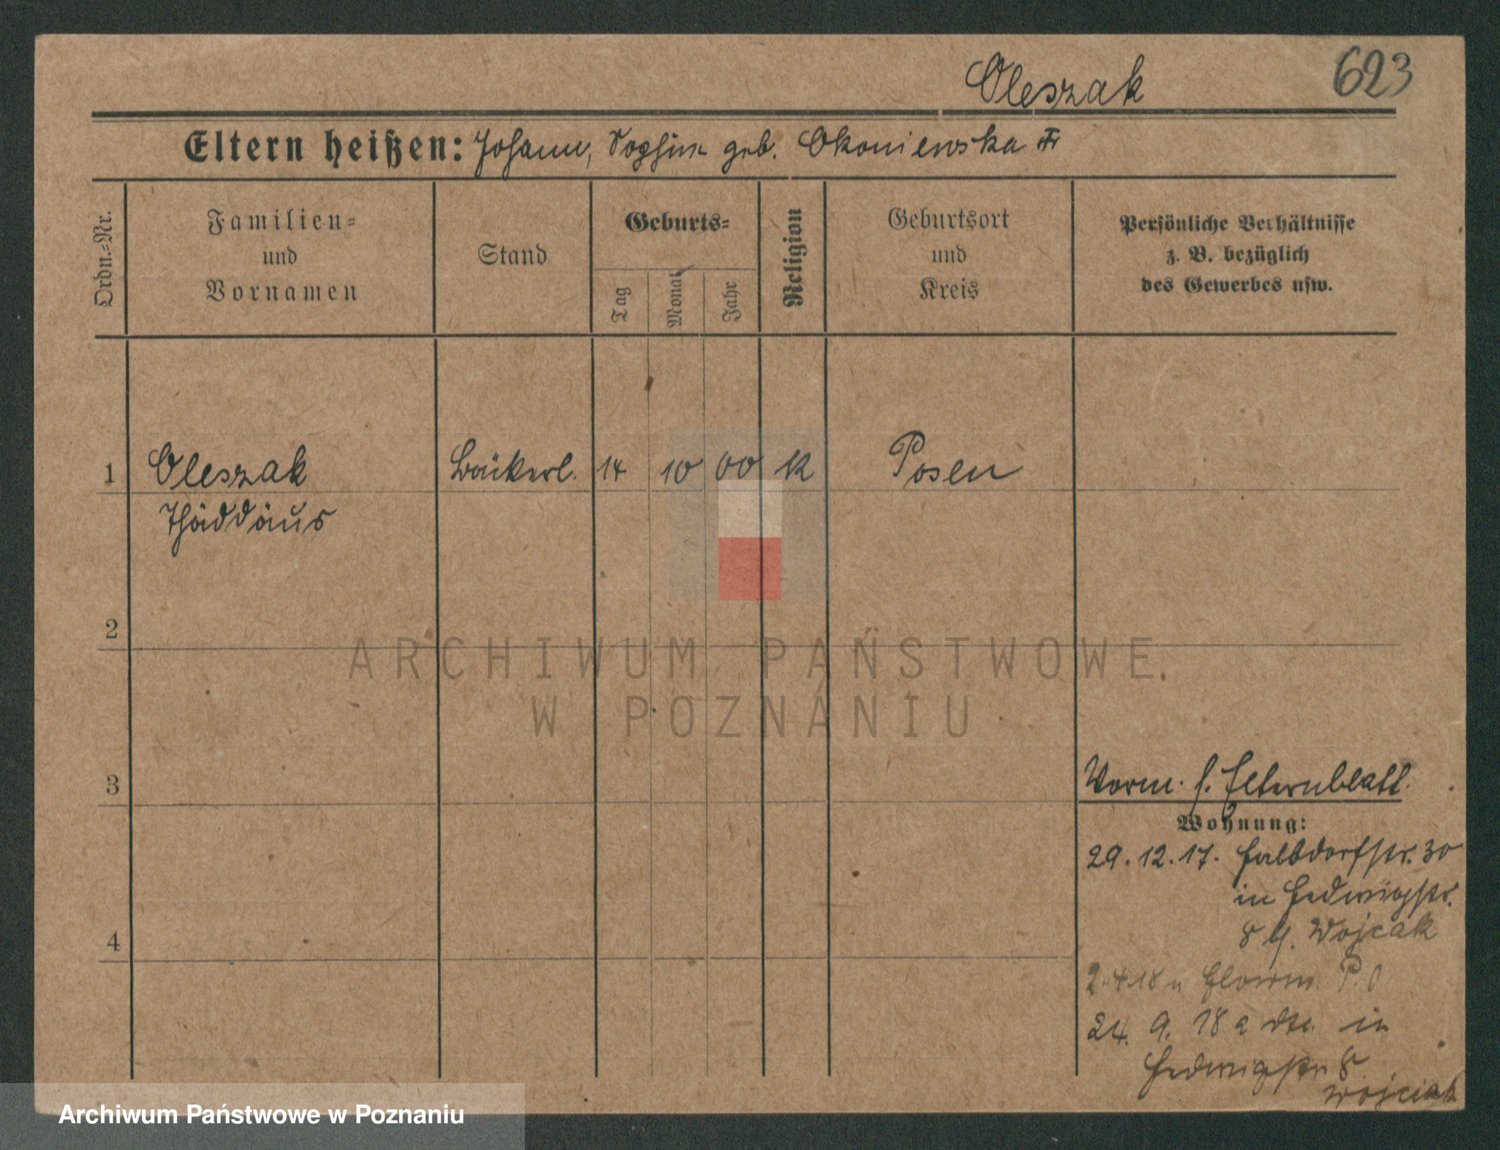 Oleszak 623
Eltern heißen: Johann, Sophie geb. Okoniewska
Ordn.=Nr.
Familien=
und
Vornamen
Stand
Geburts=
Tag
Monat
Jahr
Religion
Geburtsort
und
Kreis
Persönliche Verhältnisse
z. B. bezüglich
des Gewerbes usw.
1 Oleszak Bäckerl. 14 10 00 K Posen
Thaddäus
2
ARCHIWUM PAŃSTWOWE
W POZNANIU
3
Vorm. s. Elternblatt.
Wohnung:
29.12.17. Halbdorfstr. 30
in Hedwigstr.
8 Wojcak
4
2.4.18 P.
24. 9. 18 in
Hedwigstr 8
Wojciak
Archiwum Państwowe w Poznaniu